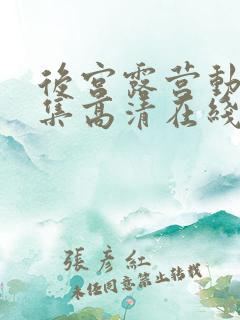 後宮露营動
集高清在綫
張彥紅
未经同意禁止转载